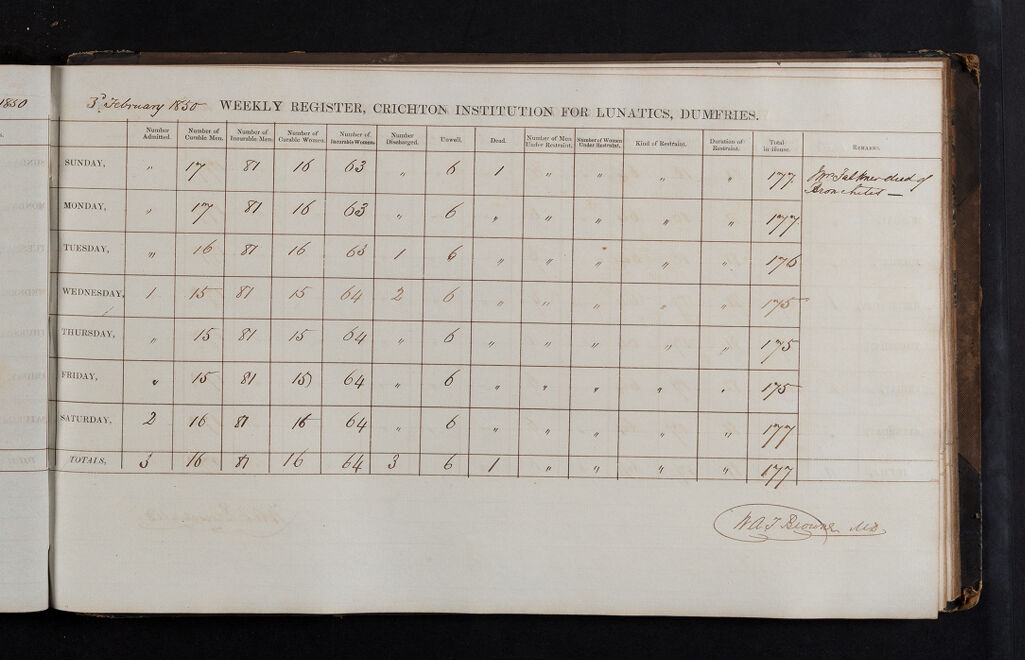 1850
3d. February 1850 WEEKLY REGISTER, CRICHTON INSTITUTION FOR LUNATICS, DUMFRIES.
Number Admitted. Number of Curable Men. Number of Incurable Men. Number of Curable Women. Number of Incurable Women. Number Discharged. Unwell. Dead. Number of Men Under Restraint. Number of Women Under Restraint. Kind of Restraint. Duration of Restraint. Total in House. Remarks.
SUNDAY, " 17 81 16 63 " 6 1 " " " " 177. died of
Bronchitis —
MONDAY, " 17 81 16 63 " 6 " " " " " 177
TUESDAY, " 16 81 16 63 1 6 " " " " " 176
WEDNESDAY, 1 15 81 15 64 2 6 " " " " " 175
THURSDAY, " 15 81 15 64 " 6 " " " " " 175
FRIDAY, " 15 81 15 64 " 6 " " " " " 175
SATURDAY, 2 16 81 16 64 " 6 " " " " " 177
TOTALS, 3 16 81 16 64 3 6 1 " " " " 177
W A F Browne M.D.